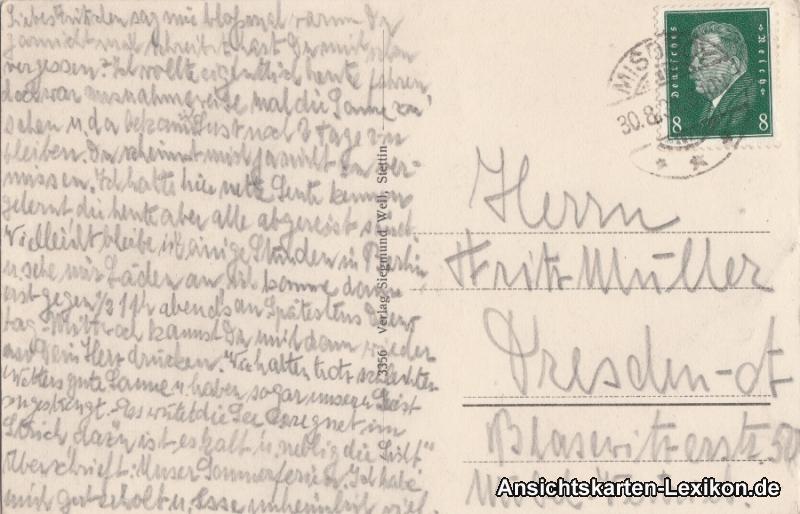 Liebes Fritzchen sag mir bloß mal warum Du
garnicht mal schreibst hast Du mich schon
vergessen? Ich wollte eigentlich heute fahren
doch war ausnahmsweise mal die Sonne zu
sehen u. da bekam Lust noch 2 Tage zu
bleiben. Du scheinst mich garnicht zu ver-
missen. Ich hatte hier nette Leute kennen
gelernt die heute aber alle abgereist sind
Vielleicht bleibe ich einige Stunden in Berlin
u. sehe mir Läden an. Ich komme dann
erst gegen 1/2 11 h abends an. Spätestens Diens-
tag-Mittwoch kannst Du mich dann wieder
ans Herz drücken. Wir hatten trotz schlechten
Wetters gute Laune u. haben sogar unseren
angestrengt. Es wütet die See es regnet im
Strich dazu ist es kalt u. neblig die Luft"
Überschrift: Unser Sommerferien. Ich habe
mich gut erholt u. esse unheimlich viel.
3356 Verlag Siegmund Weil, Stettin
Deutsches Reich
8 8
MISD
30.8.
Herrn
Fritz Müller
Dresden-A
Blasewitzerstr. 50
Ansichtskarten-Lexikon.de